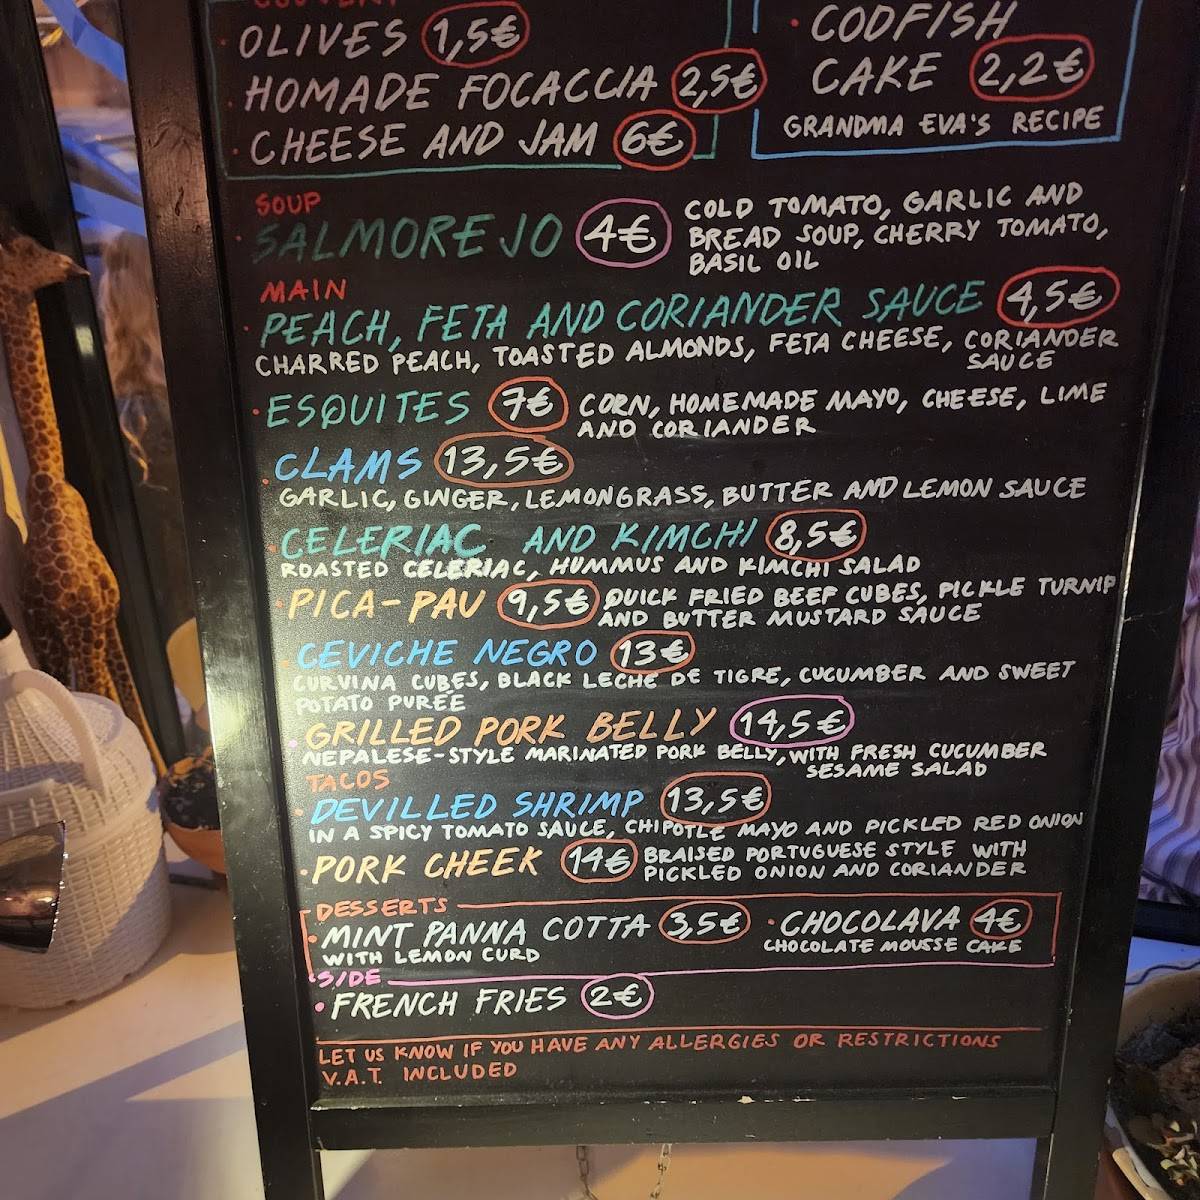 COUVERT
· OLIVES 1,5€
· HOMADE FOCACCIA 2,5€
· CHEESE AND JAM 6€
· CODFISH
CAKE 2,2€
GRANDMA EVA'S RECIPE
SOUP
· SALMOREJO 4€ COLD TOMATO, GARLIC AND
BREAD SOUP, CHERRY TOMATO,
BASIL OIL
MAIN
· PEACH, FETA AND CORIANDER SAUCE 4,5€
CHARRED PEACH, TOASTED ALMONDS, FETA CHEESE, CORIANDER
SAUCE
· ESQUITES 7€ CORN, HOMEMADE MAYO, CHEESE, LIME
AND CORIANDER
· CLAMS 13,5€
GARLIC, GINGER, LEMONGRASS, BUTTER AND LEMON SAUCE
· CELERIAC AND KIMCHI 8,5€
ROASTED CELERIAC, HUMMUS AND KIMCHI SALAD
· PICA-PAU 9,5€ QUICK FRIED BEEF CUBES, PICKLE TURNIP
AND BUTTER MUSTARD SAUCE
· CEVICHE NEGRO 13€
CURVINA CUBES, BLACK LECHE DE TIGRE, CUCUMBER AND SWEET
POTATO PURÉE
· GRILLED PORK BELLY 14,5€
NEPALESE-STYLE MARINATED PORK BELLY, WITH FRESH CUCUMBER
SESAME SALAD
TACOS
· DEVILLED SHRIMP 13,5€
IN A SPICY TOMATO SAUCE, CHIPOTLE MAYO AND PICKLED RED ONION
· PORK CHEEK 14€ BRAISED PORTUGUESE STYLE WITH
PICKLED ONION AND CORIANDER
DESSERTS
· MINT PANNA COTTA 3,5€ · CHOCOLAVA 4€
WITH LEMON CURD CHOCOLATE MOUSSE CAKE
SIDE
· FRENCH FRIES 2€
LET US KNOW IF YOU HAVE ANY ALLERGIES OR RESTRICTIONS
V.A.T. INCLUDED